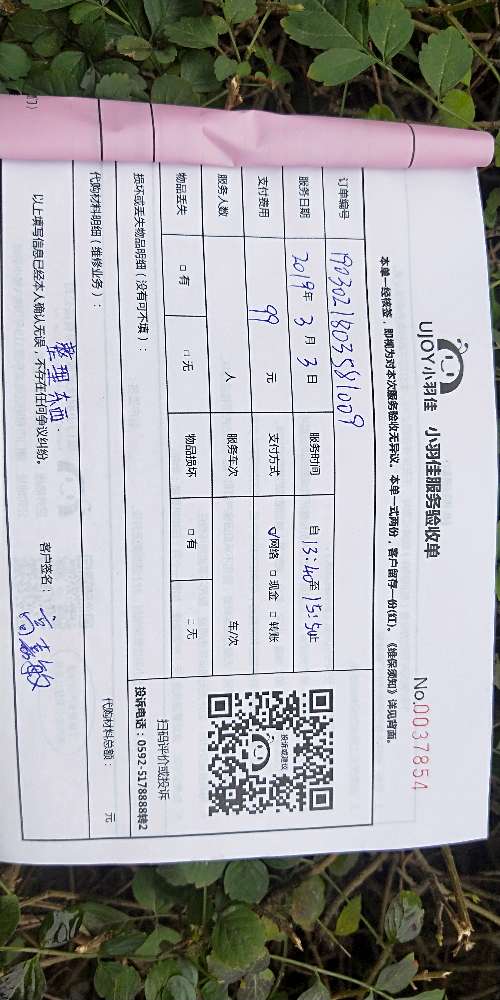 UJOY小羽佳 小羽佳服务验收单 No.0037854
本单一经核签，即视为对本次服务验收无异议。本单一式两份，客户留存一份(红)。《维保须知》详见背面。
订单编号 1903021803581009
服务日期 2019年 3月 3日 服务时间 自13:40至15:50止
支付费用 99 元 支付方式 ☑网络 □现金 □转账
服务人数 人 服务车次 车/次
物品丢失 □有 □无 物品损坏 □有 □无
投诉或建议
扫码评价或投诉
投诉电话：0592-5178888转2
损坏或丢失物品明细（没有可不填）：
代购材料明细（维修业务）： 代购材料总额： 元
整理东西
以上填写信息已经本人确认无误，不存在任何争议纠纷。 客户签名：